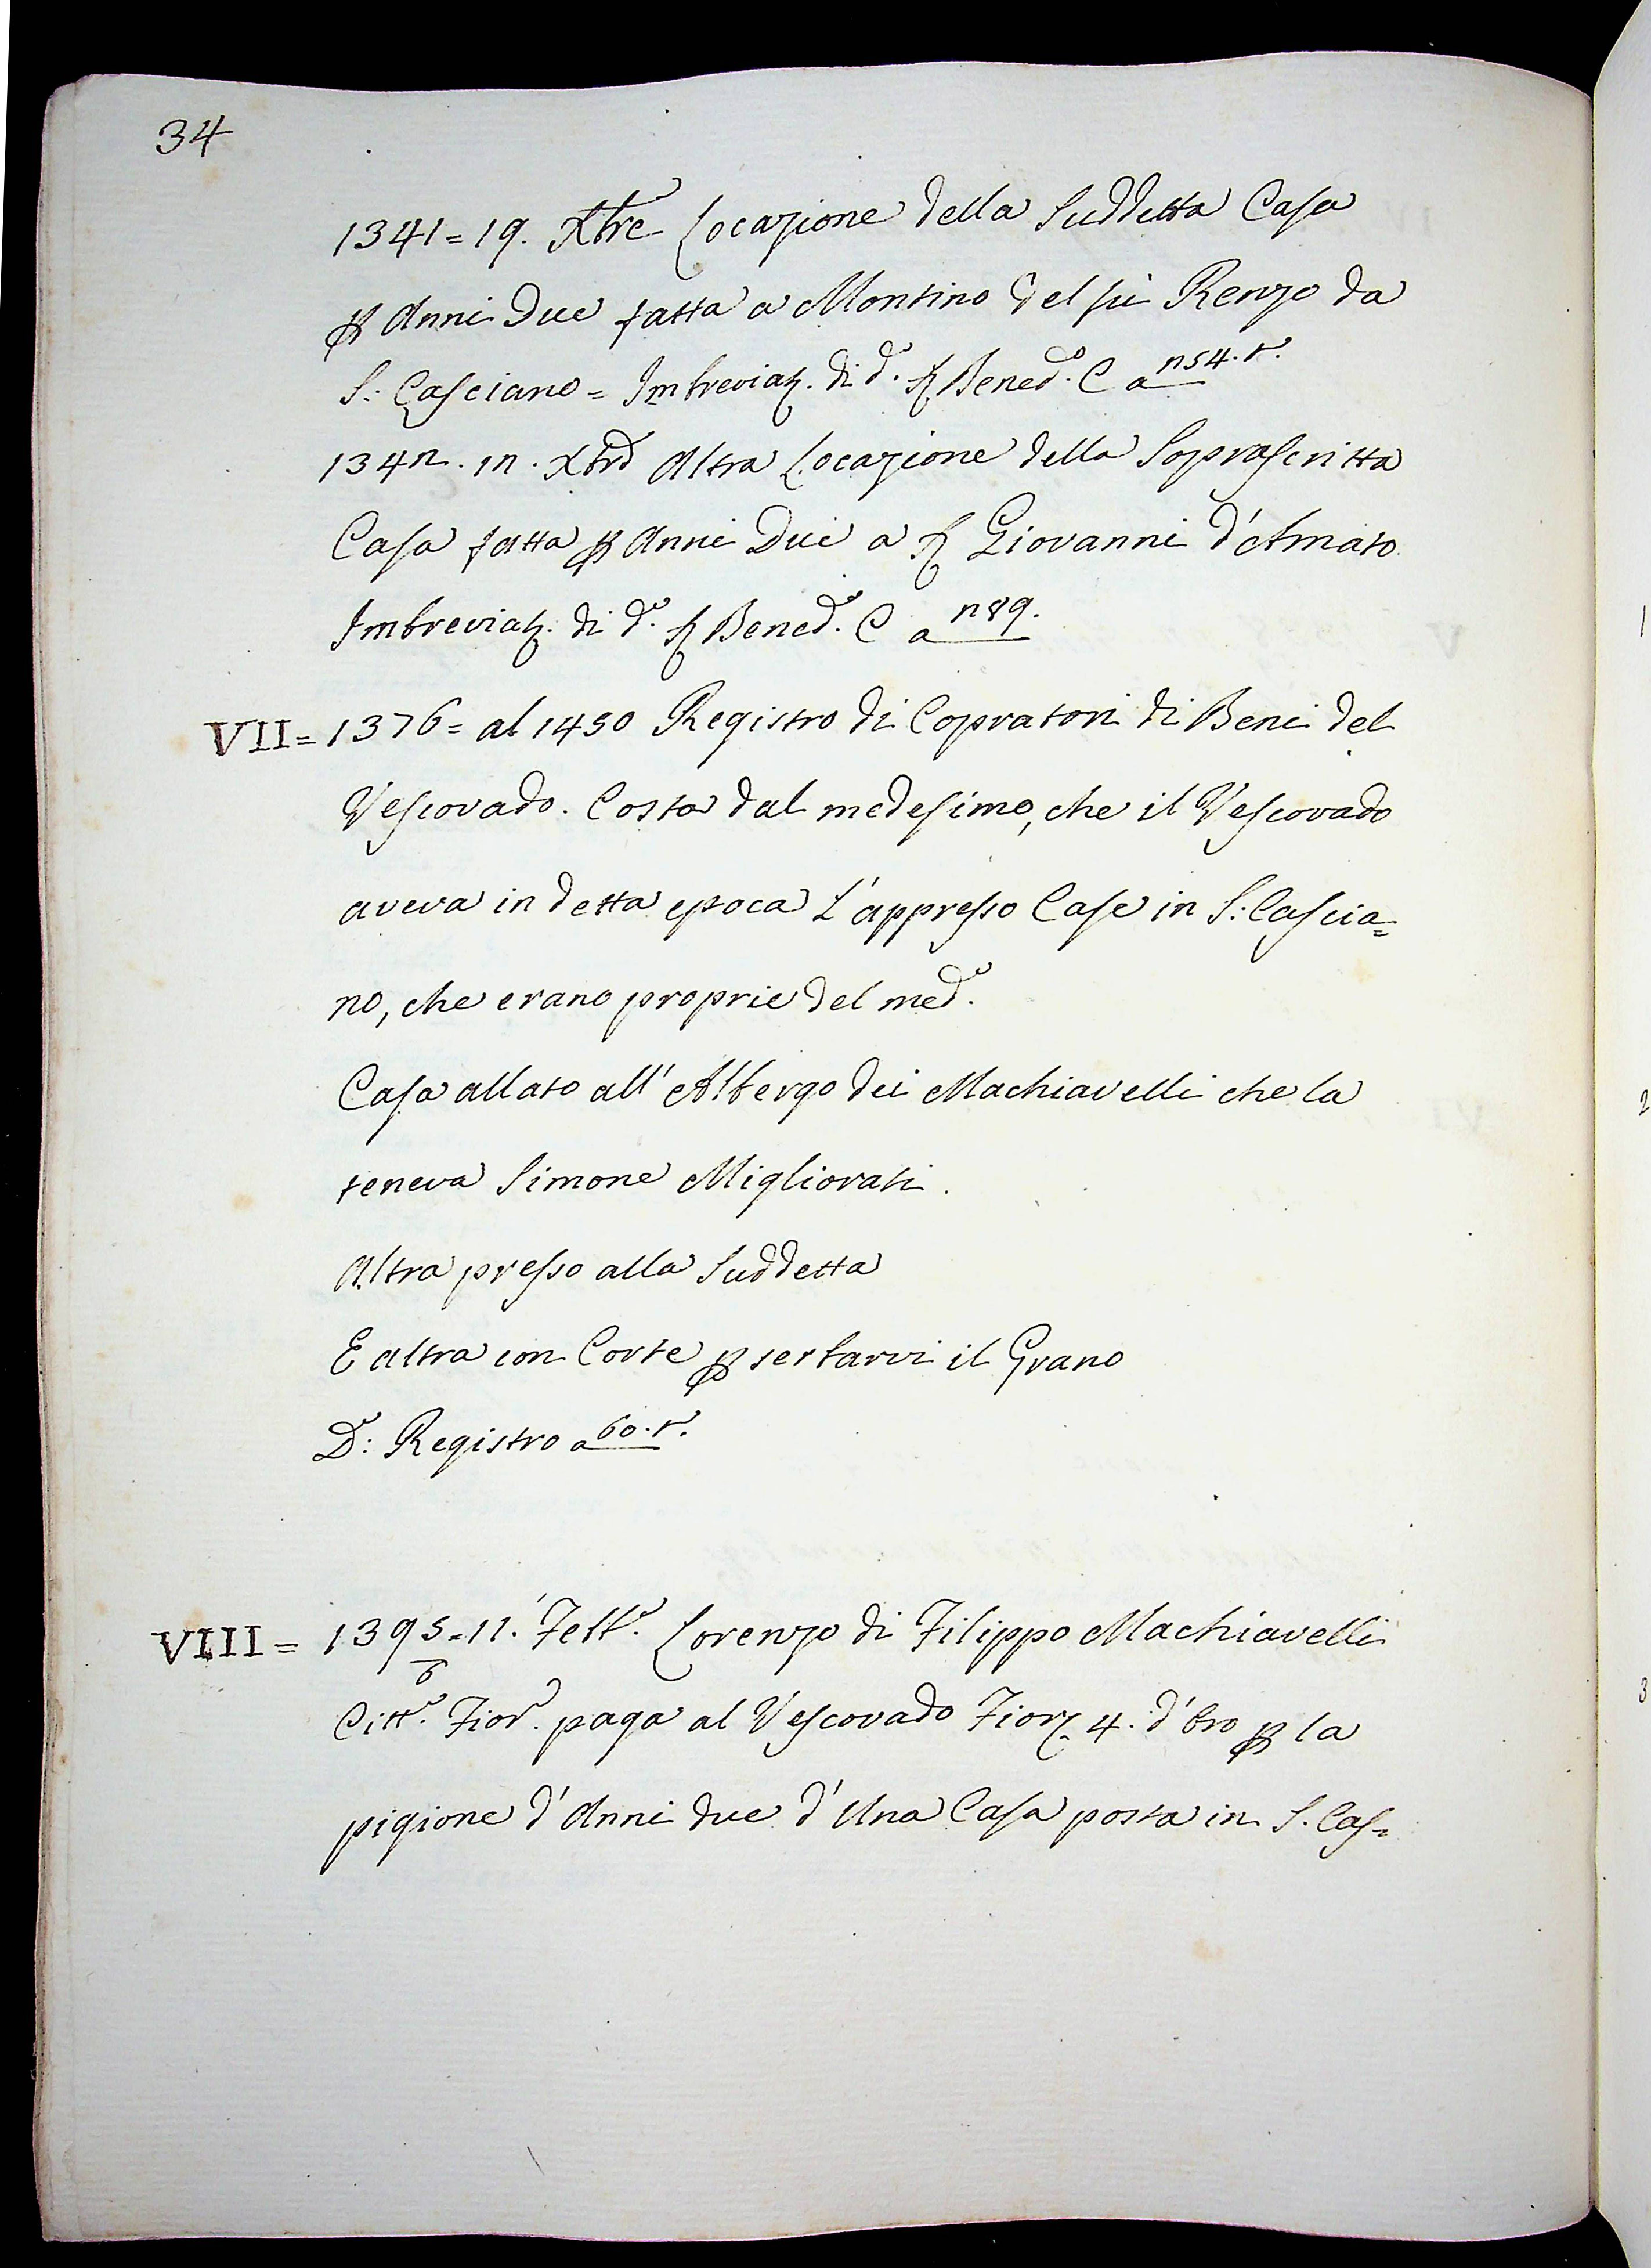 34
1341=19. Xbre Locazione della Suddetta Casa
p Anni Due fatta a Montino del fù Renzo da
S: Casciano = Imbreviaz. di d.o S Bened.o C a 254. t.o
1342. 12. Xbre Altra Locazione della Soprascritta
Casa fatta p Anni Due a S Giovanni d'Amato
Imbreviaz. di d.o S Bened.o C a 289.
VII = 1376 = al 1450 Registro di Copratori di Beni del
Vescovado. Costa dal medesimo, che il Vescovado
aveva in detta epoca L'appresso Case in S: Cascia=
no, che erano proprie del med.o
Casa allato all'Albergo dei Machiavelli che la
teneva Simone Migliorati.
Altra presso alla Suddetta
E altra con Corte p serbarvi il Grano
D.o: Registro a 60. t.o
VIII = 1395=11. Febb.o Lorenzo di Filippo Machiavelli
6
Citt.o Fior.o paga al Vescovado Fior. 4. d'Oro p la
pigione d'Anni due d'Una Casa posta in S. Cas=
1
2
3